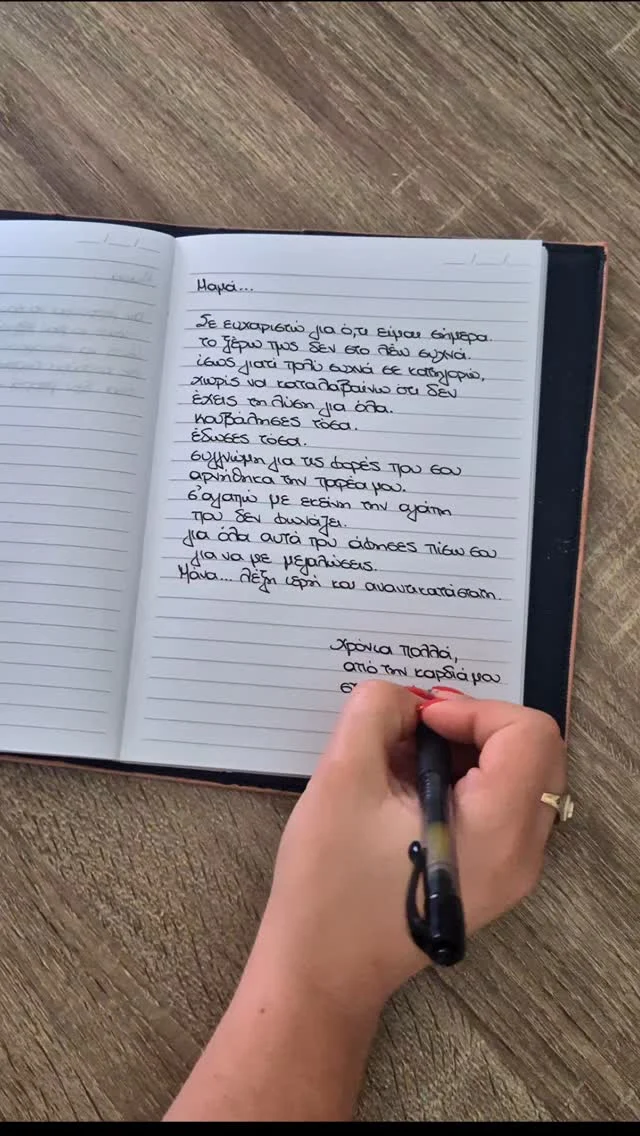 Μαμά...
Σε ευχαριστώ για ό,τι είμαι σήμερα.
το ξέρω πως δεν στο λέω συχνά.
ίσως γιατί πολύ συχνά σε κατηγορώ,
χωρίς να καταλαβαίνω ότι δεν
έχεις τη λύση για όλα.
κουβάλησες τόσα.
έδωσες τόσα.
συγγνώμη για τις φορές που σου
αρνήθηκα την παρέα μου.
σ'αγαπώ με εκείνη την αγάπη
που δεν φωνάζει.
για όλα αυτά που άφησες πίσω σου
για να με μεγαλώσεις.
Μάνα... λέξη ιερή και αναντικατάστατη.
Χρόνια πολλά,
από την καρδιά μου
στ